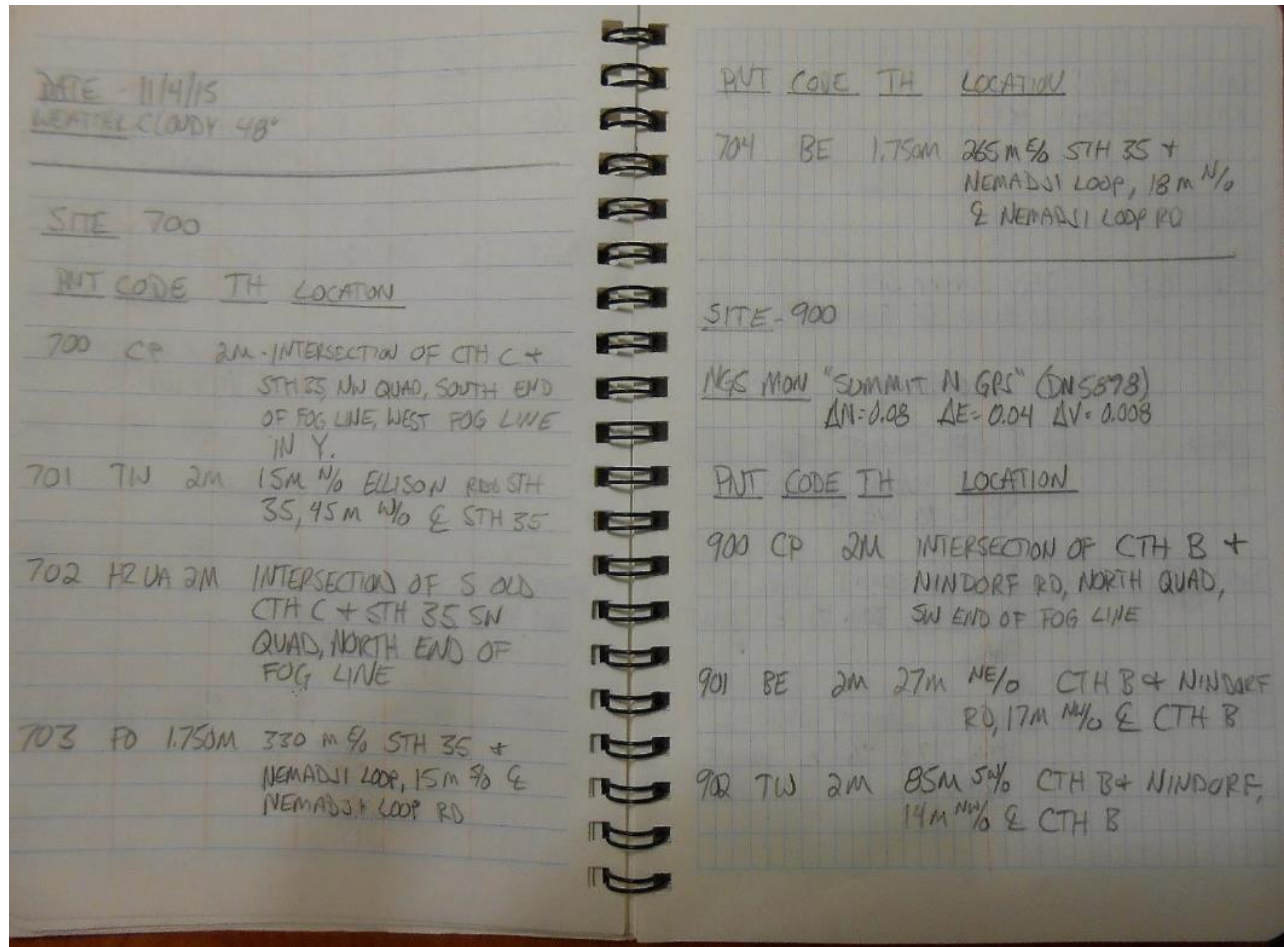 DATE - 11/4/15
WEATHER CLOUDY 48°
SITE 700
PNT CODE TH LOCATION
700 CP 2M - INTERSECTION OF CTH C +
STH 35, NW QUAD, SOUTH END
OF FOG LINE, WEST FOG LINE
IN Y.
701 TW 2M 15M N/O ELLISON RD & STH
35, 45 M W/O ℄ STH 35
702 HZ UA 2M INTERSECTION OF S OLD
CTH C + STH 35 SW
QUAD, NORTH END OF
FOG LINE
703 FO 1.750M 330 M E/O STH 35 +
NEMADJI LOOP, 15M S/O ℄
NEMADJI LOOP RD
PNT CODE TH LOCATION
704 BE 1.750M 265 M E/O STH 35 +
NEMADJI LOOP, 18 M N/O
℄ NEMADJI LOOP RD
SITE - 900
NGS MON "SUMMIT N GPS" (DN5898)
ΔN=0.08 ΔE=0.04 ΔV=0.008
PNT CODE TH LOCATION
900 CP 2M INTERSECTION OF CTH B +
NINDORF RD, NORTH QUAD,
SW END OF FOG LINE
901 BE 2M 27M NE/O CTH B + NINDORF
RD, 17M NW/O ℄ CTH B
902 TW 2M 85M SW/O CTH B + NINDORF,
14M NW/O ℄ CTH B